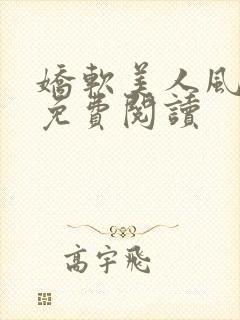 嬌軟美人風
免費閱讀
高宇飛